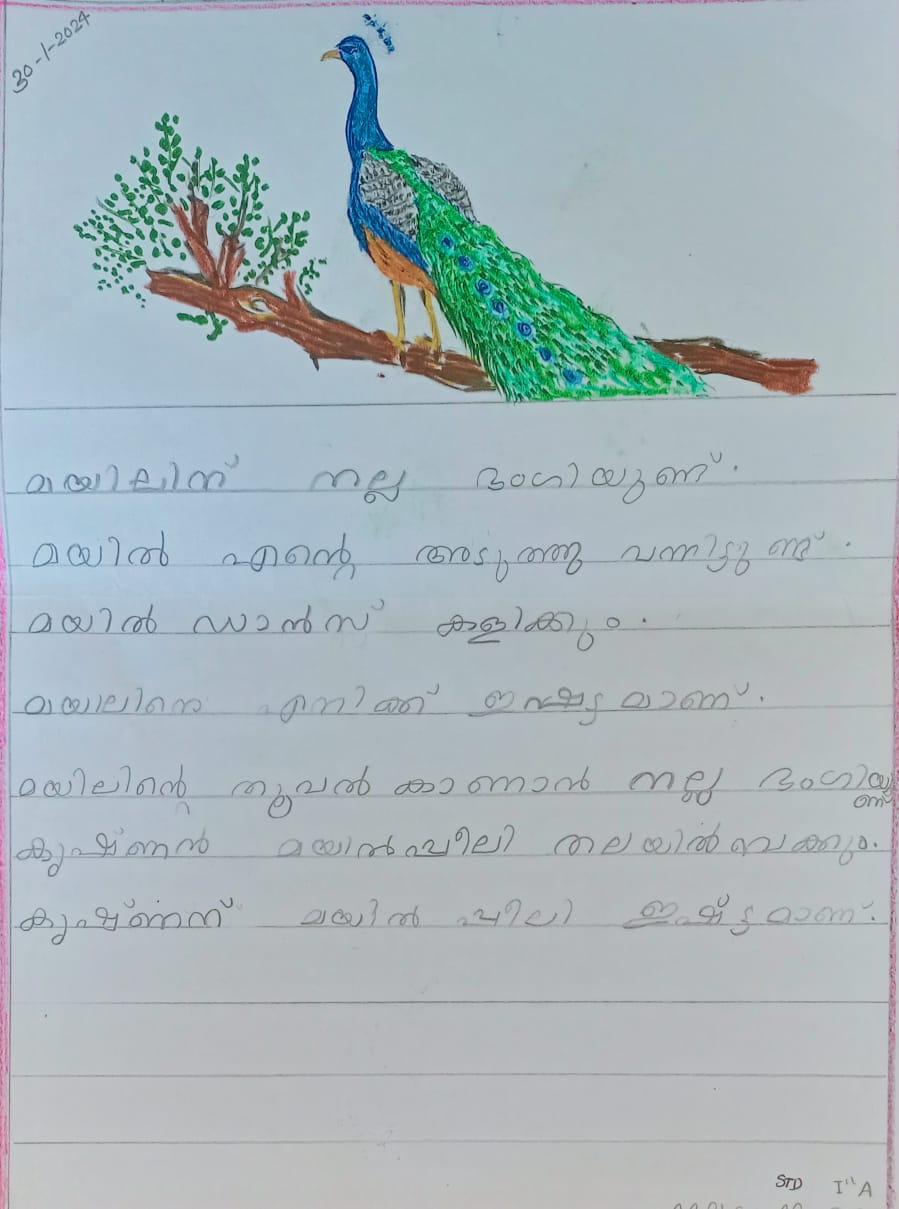 30-1-2024
മയിലിന് നല്ല ഭംഗിയുണ്ട്.
മയിൽ എന്റെ അടുത്തു വന്നിട്ടുണ്ട്.
മയിൽ ഡാൻസ് കളിക്കും.
മയിലിനെ എനിക്ക് ഇഷ്ടമാണ്.
മയിലിന്റെ തൂവൽ കാണാൻ നല്ല ഭംഗിയു
ണ്ട്
കൃഷ്ണൻ മയിൽപ്പീലി തലയിൽ വെക്കും.
കൃഷ്ണന് മയിൽ പീലി ഇഷ്ടമാണ്.
STD I" A